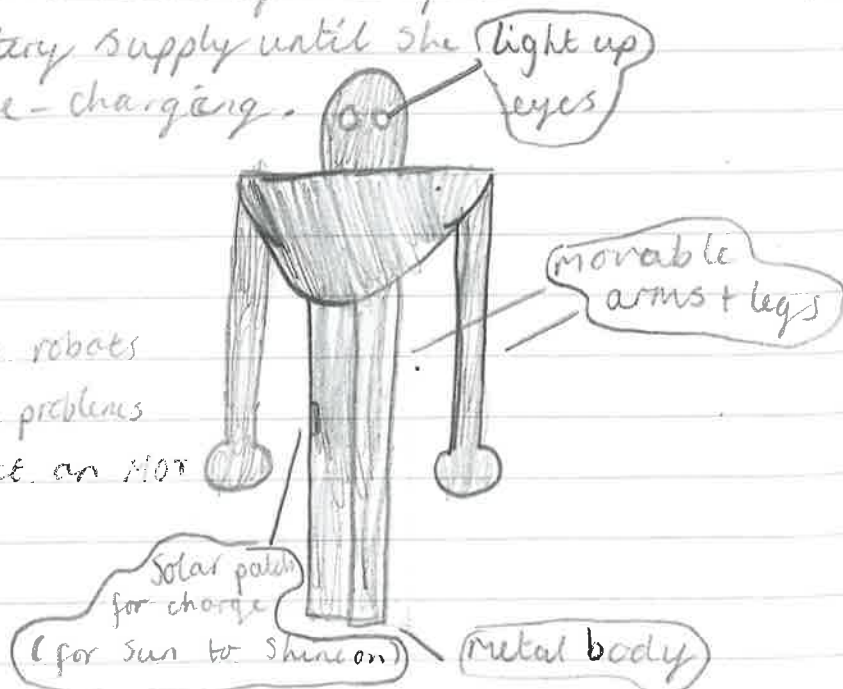 tery supply until she
e-charging.
light up
eyes
movable
arms + legs
robots
problems
an MOT
Solar patch
for charge
(for Sun to Shine on)
metal body